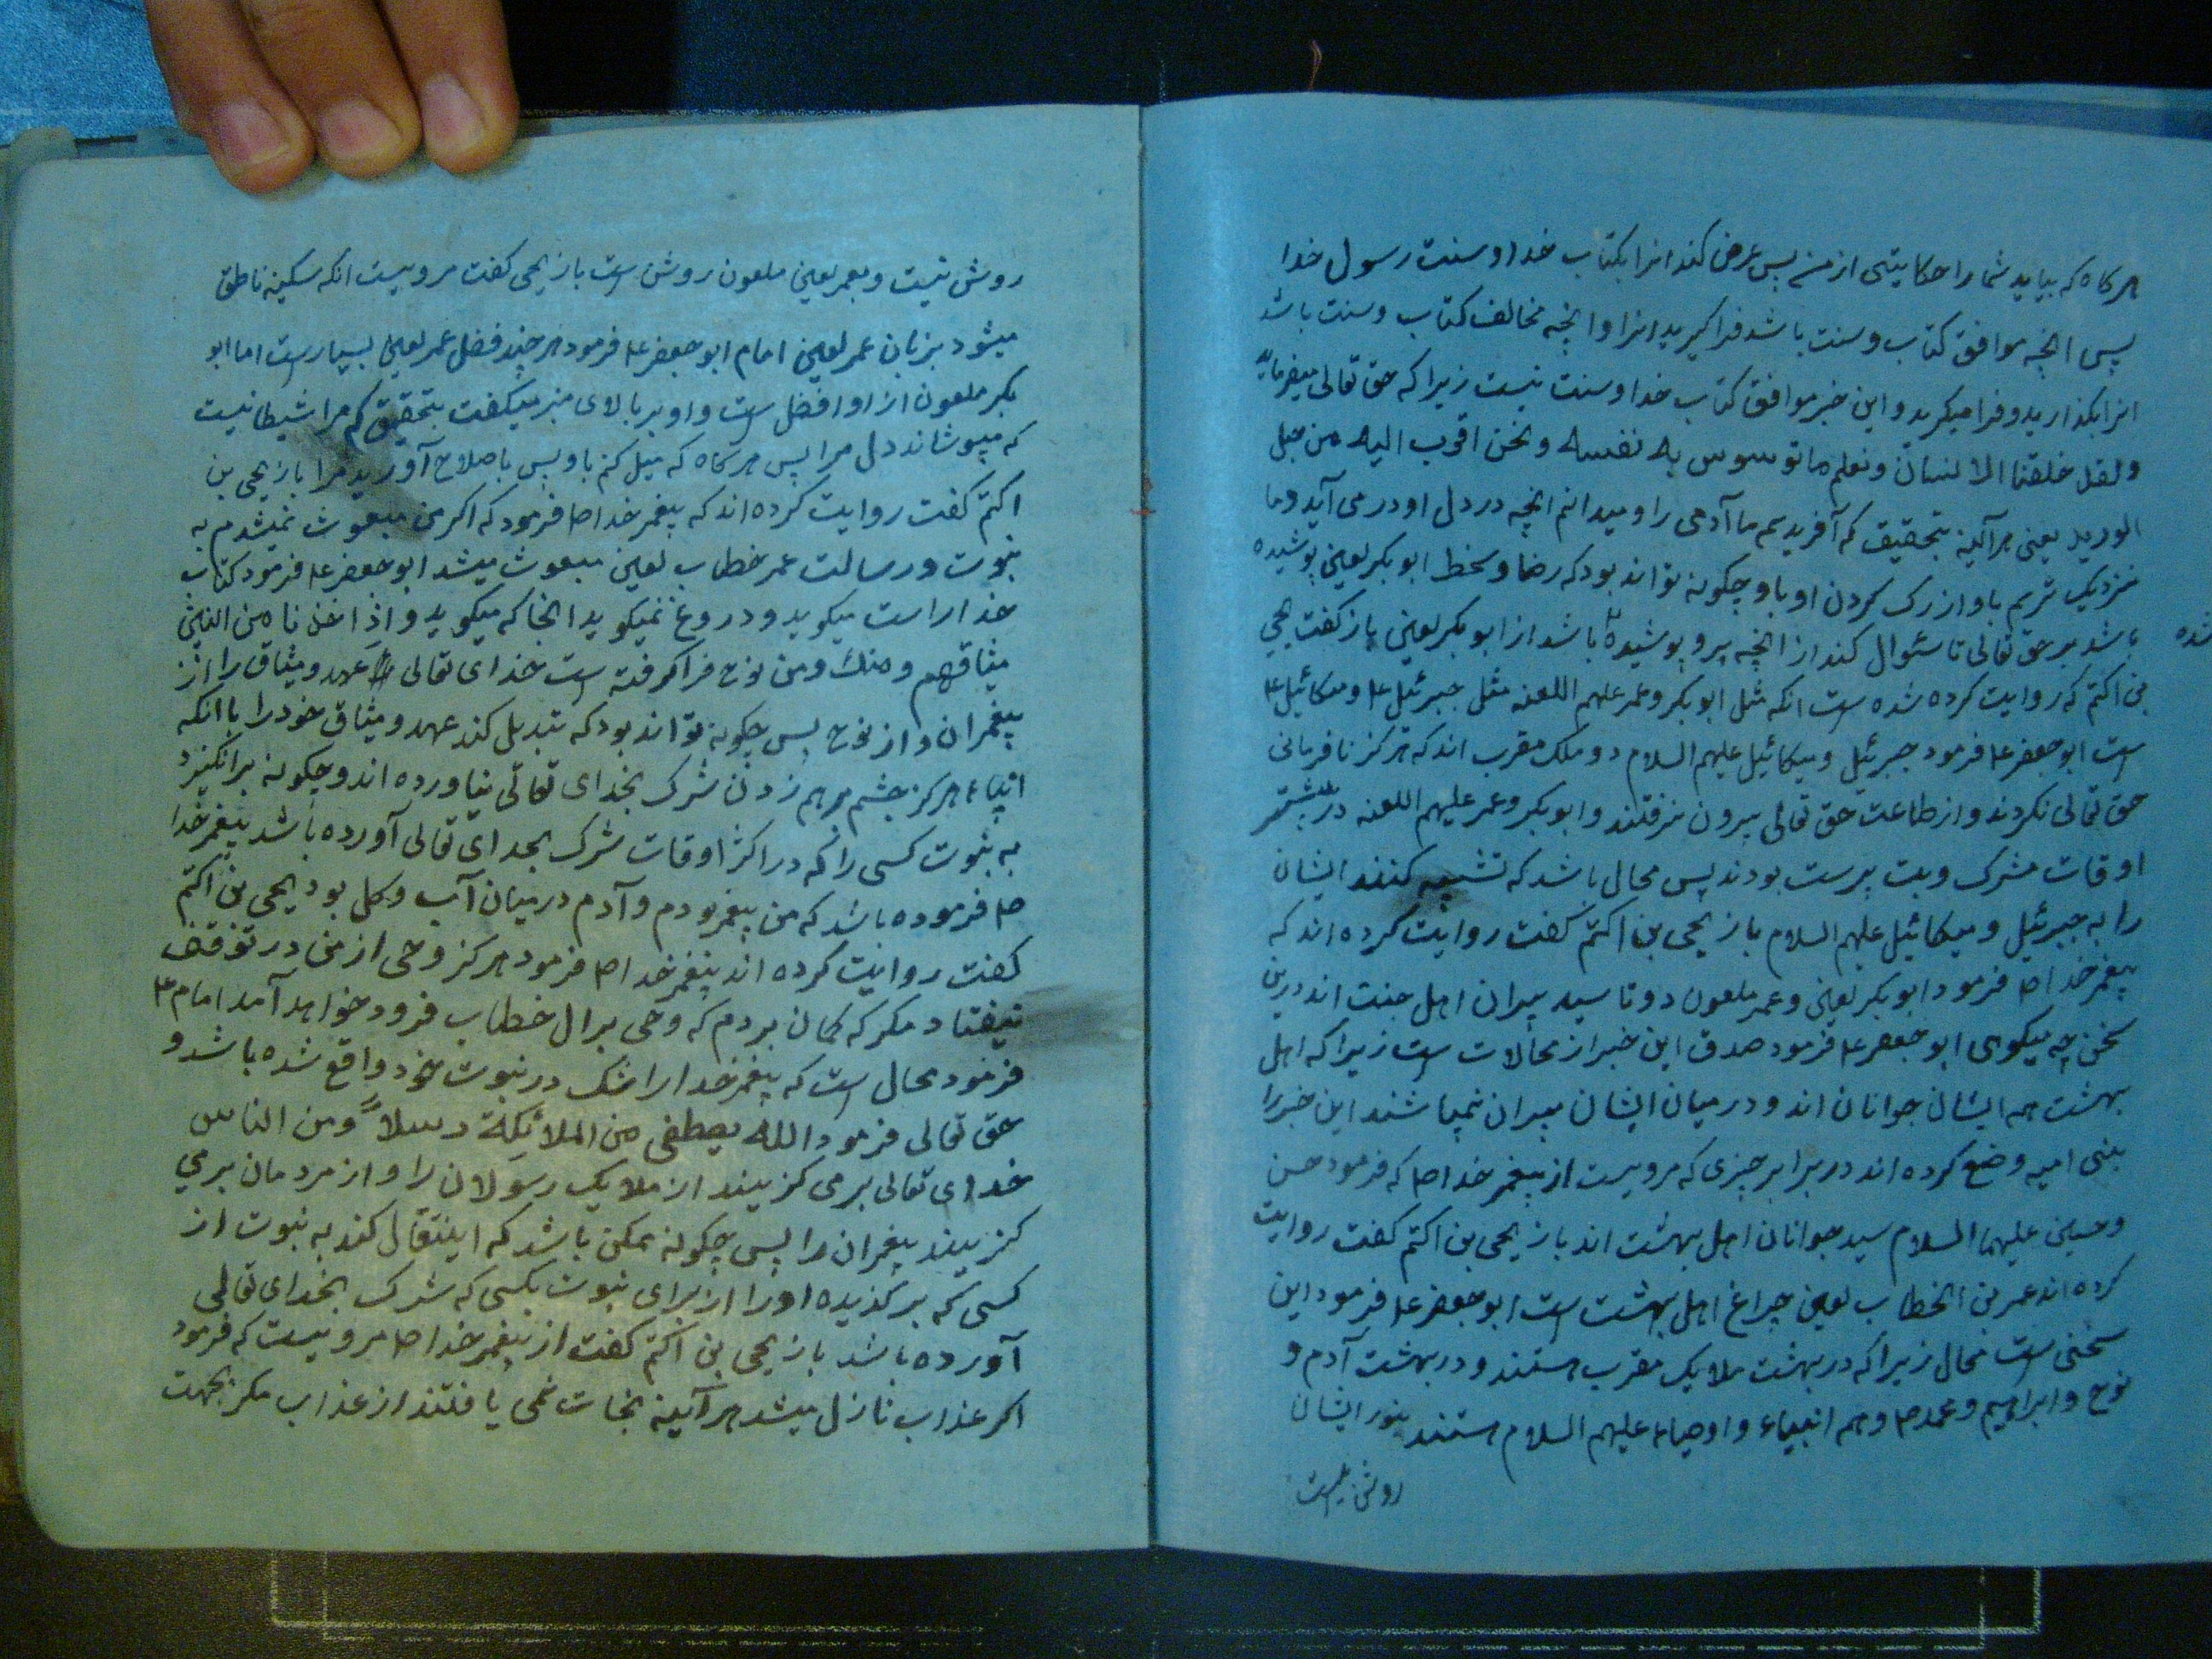 هرکاه که بیاید شما را حکایتی از من پس عرض کند انرا بکتاب خدا و سنت رسول خدا
پس انچه موافق کتاب و سنت باشد فرا کیرید انرا و انچه مخالف کتاب و سنت باشد
انرا بکذارید و فرا میکرید و این خبر موافق کتاب خدا و سنت نیست زیرا که حق تعالی میفرماید
ولقد خلقنا الانسان ونعلم ما توسوس به نفسه ونحن اقرب الیه من حبل
الورید یعنی هرآینه بتحقیق که آفریدیم ما آدمی را و میدانم انچه در دل او در می آید و ما
نزدیک تریم باو از رک کردن او باو چکونه تواند بود که رضا و سخط ابو بکر لعین پوشیده
باشد بر حق تعالی تا سئوال کند از انچه برو پوشیده باشد از ابو بکر لعین باز کفت یحیی
بن اکتم که روایت کرده شده است انکه مثل ابو بکر و عمر علیهم اللعنه مثل جبرئیل ع و میکائیل ع
است ابو جعفر ع فرمود جبرئیل و میکائیل علیهم السلام دو ملک مقرب اند که هرکز نافرمانی
حق تعالی نکردند و از طاعت حق تعالی بیرون نرفتند و ابو بکر و عمر علیهم اللعنه در بیشتر
اوقات مشرک و بت پرست بودند پس محال باشد که تشبیه کنند ایشان
را به جبرئیل و میکائیل علیهم السلام باز یحیی بن اکتم کفت روایت کرده اند که
پیغمبر خدا ص فرمود ابو بکر لعین و عمر ملعون دو تا سید پیران اهل جنت اند درین
سخن چه میکوی ابو جعفر ع فرمود صدق این خبر از محالات است زیرا که اهل
بهشت همه ایشان جوانان اند و در میان ایشان پیران نمیباشند این خبر را
بنی امیه وضع کرده اند در برابر چیزی که مرویست از پیغمبر خدا ص که فرمود حسن
و حسین علیهما السلام سید جوانان اهل بهشت اند باز یحیی بن اکتم کفت روایت
کرده اند عمر بن الخطاب لعین چراغ اهل بهشت است ابو جعفر ع فرمود این
سخنی است محال زیرا که در بهشت ملایک مقرب هستند و در بهشت آدم و
نوح و ابراهیم و محمد ص و همه انبیاء و اوصیاء علیهم السلام هستند بنور ایشان
روشن نیست
روشن نیست و بعمر لعین ملعون روشن است باز یحیی کفت مرویست انکه سکینه ناطق
میشود بزبان عمر لعین امام ابو جعفر ع فرمود هرچند فضل عمر لعین بسیار است اما ابو
بکر ملعون از او افضل است و او بر بالای منبر میکفت بتحقیق که مرا شیطانیست
که میپوشاند دل مرا پس هرکاه که میل کنم باو پس باصلاح آورید مرا باز یحیی بن
اکتم کفت روایت کرده اند که پیغمبر خدا ص فرمود که اکر من مبعوث نمیشدم به
نبوت و رسالت عمر خطاب لعین مبعوث میشد ابو جعفر ع فرمود کتاب
خدا راست میکوید و دروغ نمیکوید انجا که میکوید و اذ اخذنا من النبیین
میثاقهم ومنک ومن نوح فرا کرفته است خدای تعالی عهد و میثاق را از
پیغمبران و از نوح پس چکونه تواند بود که تبدیل کند عهد و میثاق خود را با انکه
انبیاء هرکز چشم برهم زدن شرک بخدای تعالی نیاورده اند و چکونه برانکیزد
به نبوت کسی را که در اکثر اوقات شرک بخدای تعالی آورده باشد پیغمبر خدا
ص فرموده باشد که من پیغمبر بودم و آدم در میان آب و کل بود یحیی بن اکتم
کفت روایت کرده اند پیغمبر خدا ص فرمود هرکز وحی از من در توقف
نیفتاد مکر که کمان بردم که وحی بر ال خطاب فرود خواهد آمد امام ع
فرمود محال است که پیغمبر خدا را شک در نبوت خود واقع شده باشد و
حق تعالی فرمود الله یصطفی من الملائکة رسلاً ومن الناس
خدای تعالی برمی کزیند از ملایک رسولان را و از مردمان برمی
کزیند پیغمبران را پس چکونه ممکن باشد که اینتقال کند به نبوت از
کسی که برکذیده او را از برای نبوت بکسی که شرک بخدای تعالی
آورده باشد باز یحیی بن اکتم کفت از پیغمبر خدا ص مرویست که فرمود
اکر عذاب نازل میشد هرآینه نجات نمی یافتند از عذاب مکر بجهت